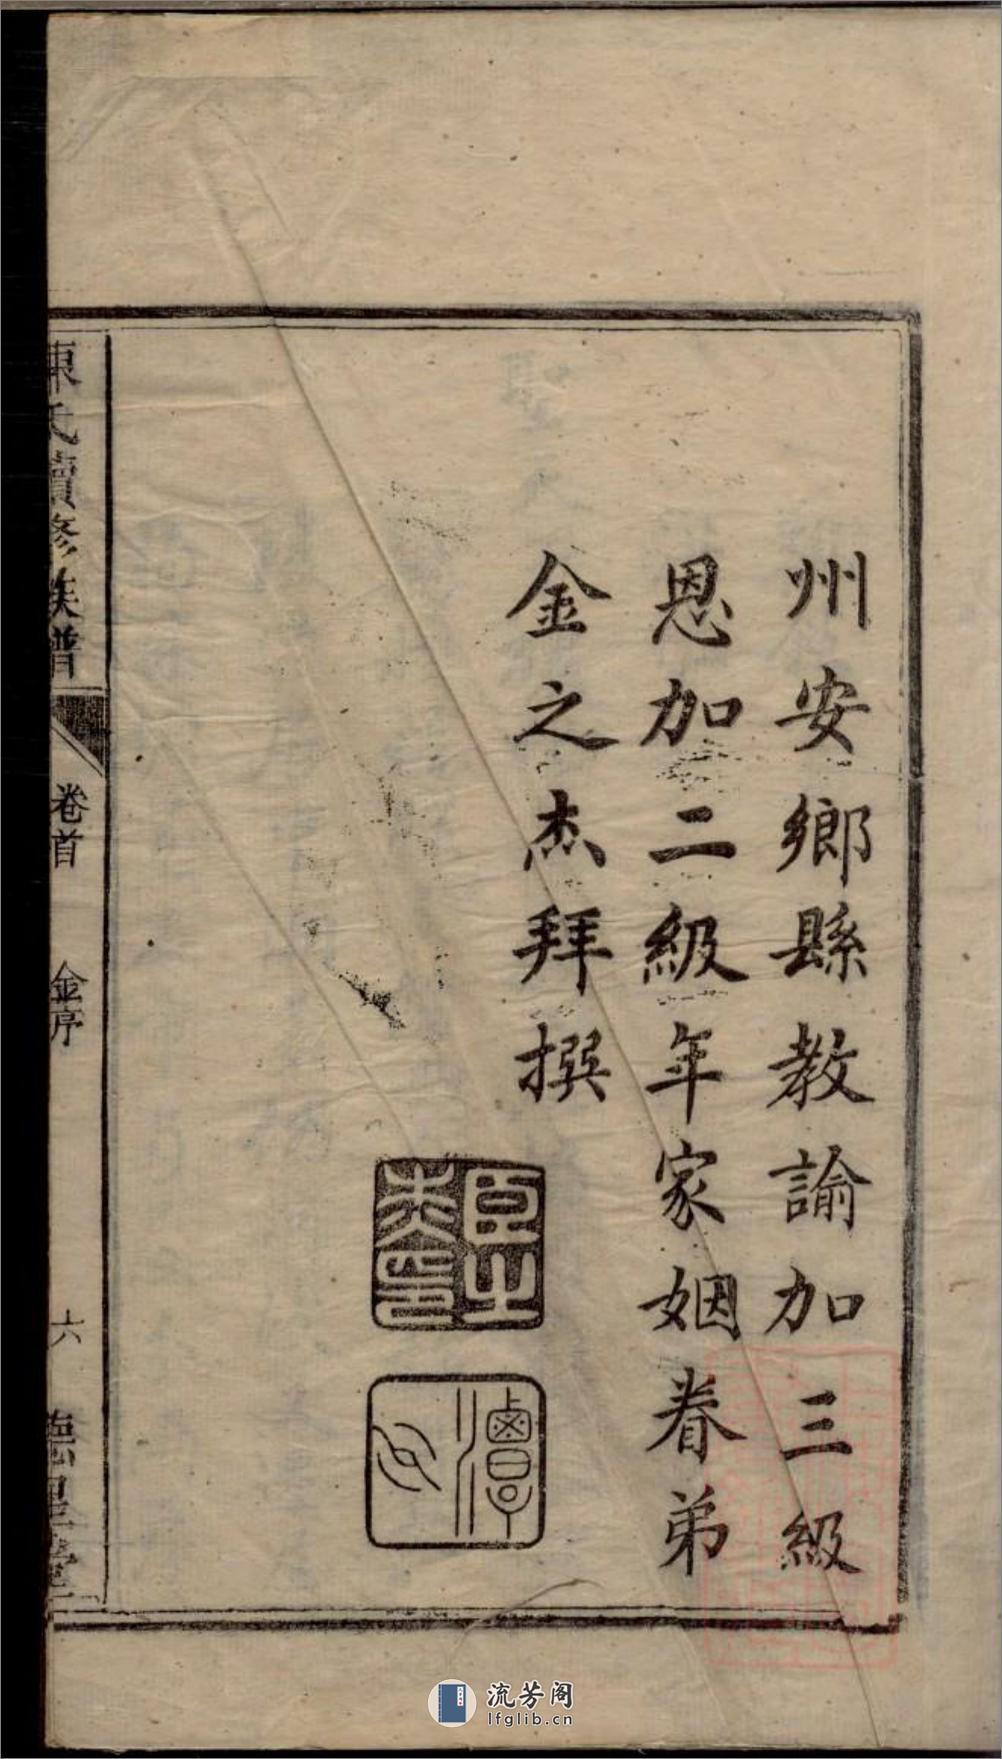 州安鄉縣教諭加三級
恩加二級年家姻眷弟
金之杰拜撰
臣之杰印
氏續修族譜
卷首
金序
六
德星堂
流芳阁
lfglib.cn